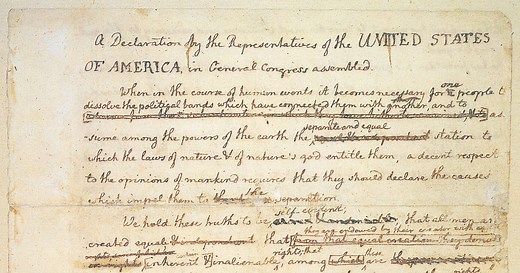 A Declaration by the Representatives of the UNITED STATES
OF AMERICA, in General Congress assembled.
When in the course of human events it becomes necessary for one people to
dissolve the political bands which have connected them with another, and to as-
sume among the powers of the earth the separate and equal station to
which the laws of nature & of nature's god entitle them, a decent respect
to the opinions of mankind requires that they should declare the causes
which impel them to the separation.
We hold these truths to be self-evident, that all men are
created equal that they are endowed by their creator with
rights; that these
inherent & inalienable among which are